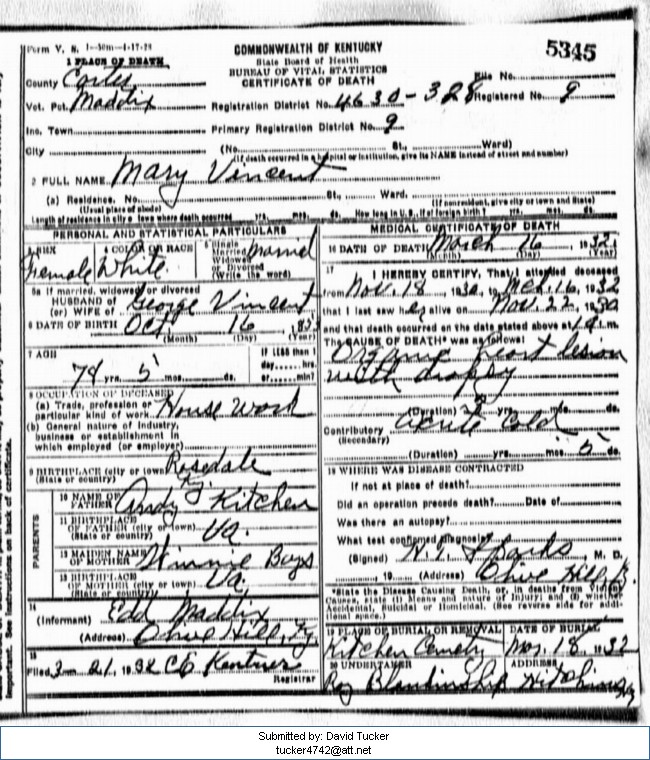 Form V. S. 1-50m-1-17-28
COMMONWEALTH OF KENTUCKY
State Board of Health
BUREAU OF VITAL STATISTICS
CERTIFICATE OF DEATH
5345
1 PLACE OF DEATH
County Carter
File No.
Vot. Pct. Maddix
Registration District No. 4630-328
Registered No. 9
Inc. Town
Primary Registration District No. 9
City (No. St., Ward)
(If death occurred in a hospital or institution, give its NAME instead of street and number)
2 FULL NAME Mary Vincent
(a) Residence. No. St., Ward.
(Usual place of abode) (If nonresident, give city or town and State)
Length of residence in city or town where death occurred yrs. mos. ds. How long in U. S., if of foreign birth? yrs. mos. ds.
PERSONAL AND STATISTICAL PARTICULARS
3 SEX Female
4 COLOR OR RACE White
5 Single Married Widowed or Divorced (Write the word) Married
5a If married, widowed or divorced
HUSBAND of
(or) WIFE of George Vincent
6 DATE OF BIRTH Oct 16
(Month) (Day) (Year)
7 AGE
78 yrs. 5 mos. ds.
If LESS than 1 day hrs. or min?
8 OCCUPATION OF DECEASED
(a) Trade, profession or particular kind of work House work
(b) General nature of industry, business or establishment in which employed (or employer)
9 BIRTHPLACE (city or town) Rosedale
(State or country) Ky.
PARENTS
10 NAME OF FATHER Andy Kitchen
11 BIRTHPLACE OF FATHER (city or town) (State or country) Va.
12 MAIDEN NAME OF MOTHER Winnie Bays
13 BIRTHPLACE OF MOTHER (city or town) (State or country) Va.
14
(Informant) Edd Maddix
(Address) Olive Hill, Ky
15
Filed 3-21, 1932 CE Kentner
Registrar
MEDICAL CERTIFICATE OF DEATH
16 DATE OF DEATH March 16, 1932
(Month) (Day) (Year)
17 I HEREBY CERTIFY, That I attended deceased
from Nov. 18 1930, to Mch. 16, 1932
that I last saw her alive on Nov. 22, 1930
and that death occurred on the date stated above at m.
The CAUSE OF DEATH* was as follows:
Organic heart lesion
with dropsy
(Duration) yrs. mos. ds.
Contributory Acute Cold
(Secondary)
(Duration) yrs. mos. 5 ds.
18 WHERE WAS DISEASE CONTRACTED
If not at place of death?
Did an operation precede death? Date of
Was there an autopsy?
What test confirmed diagnosis?
(Signed) H. T. Sparks, M. D.
, 19 (Address) Olive Hill, K.
*State the Disease Causing Death, or, in deaths from Violent Causes, state (1) Means and nature of Injury; and (2) whether Accidental, Suicidal or Homicidal. (See reverse side for additional space.)
19 PLACE OF BURIAL OR REMOVAL
Kitchen Cemetry
DATE OF BURIAL
Mar. 18, 1932
20 UNDERTAKER
Roy Blankinship
ADDRESS
Hitchins, Ky
important. See instructions on back of certificate.
Submitted by: David Tucker
tucker4742@att.net